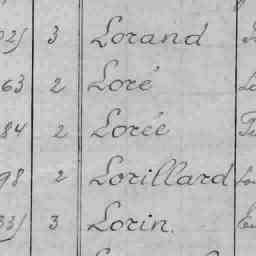 3 Lorand
63 2 Loré
84 2 Lorée
98 2 Lorillard
3 Lorin.